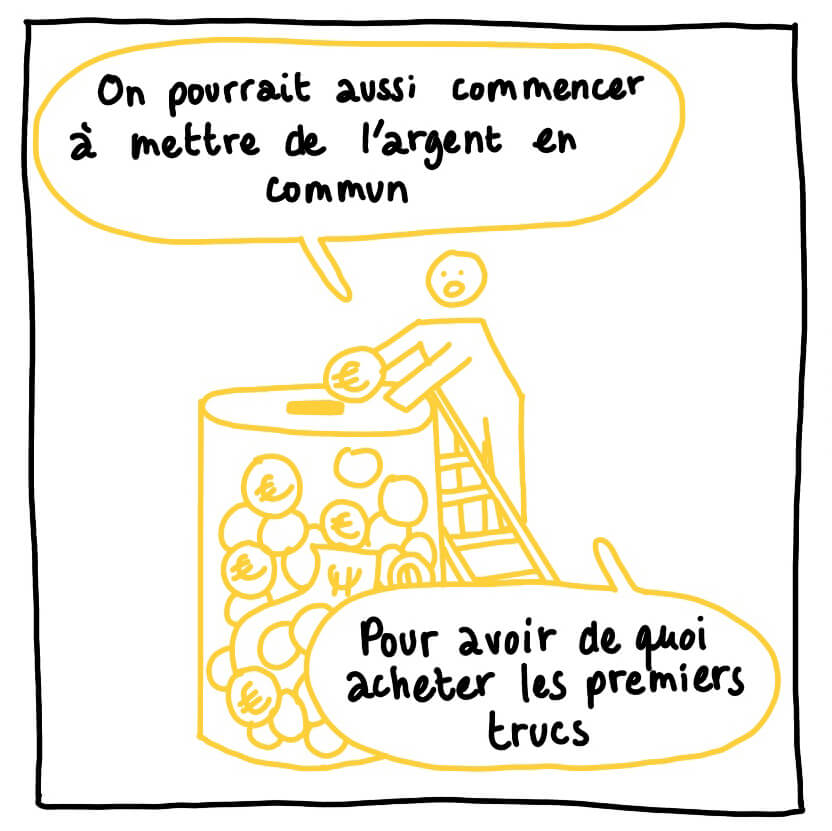 On pourrait aussi commencer
à mettre de l'argent en
commun
€
€
€
€
€
Pour avoir de quoi
acheter les premiers
trucs